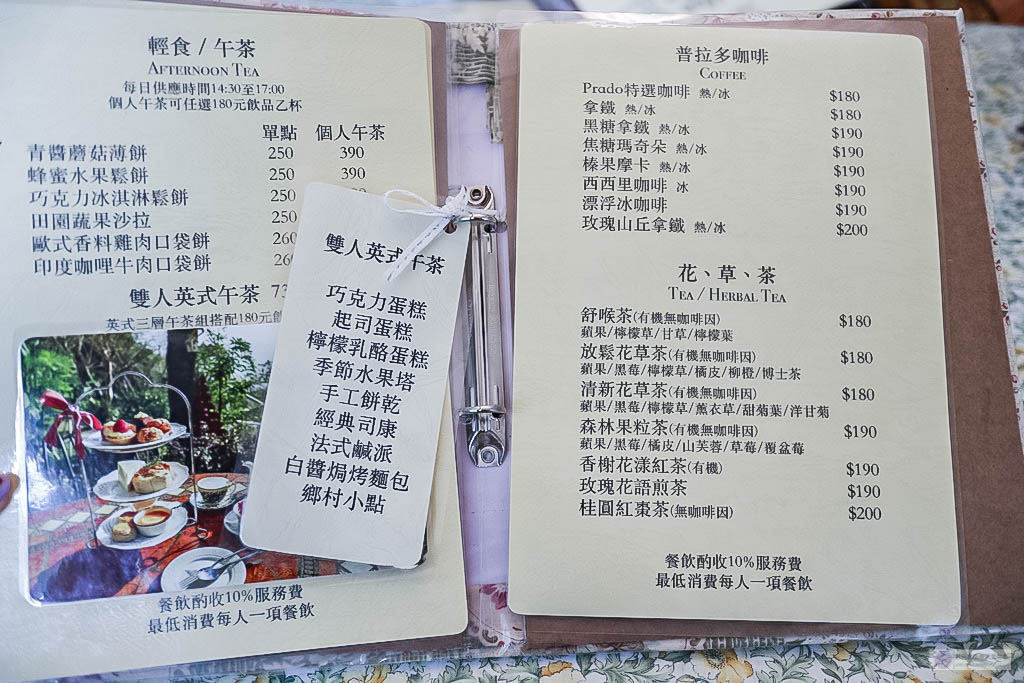 輕食 / 午茶
AFTERNOON TEA
每日供應時間14:30至17:00
個人午茶可任選180元飲品乙杯
單點 個人午茶
青醬蘑菇薄餅 250 390
蜂蜜水果鬆餅 250 390
巧克力冰淇淋鬆餅 250
田園蔬果沙拉 250
歐式香料雞肉口袋餅
印度咖哩牛肉口袋餅
雙人英式午茶
英式三層午茶組搭配180元
餐飲酌收10%服務費
最低消費每人一項餐飲
雙人英式午茶
巧克力蛋糕
起司蛋糕
檸檬乳酪蛋糕
季節水果塔
手工餅乾
經典司康
法式鹹派
白醬焗烤麵包
鄉村小點
普拉多咖啡
COFFEE
Prado特選咖啡 熱/冰 $180
拿鐵 熱/冰 $180
黑糖拿鐵 熱/冰 $190
焦糖瑪奇朵 熱/冰 $190
榛果摩卡 熱/冰 $190
西西里咖啡 冰 $190
漂浮冰咖啡 $190
玫瑰山丘拿鐵 熱/冰 $200
花、草、茶
TEA / HERBAL TEA
舒喉茶(有機無咖啡因) $180
蘋果/檸檬草/甘草/檸檬葉
放鬆花草茶(有機無咖啡因) $180
蘋果/黑莓/檸檬草/橘皮/柳橙/博士茶
清新花草茶(有機無咖啡因) $180
蘋果/黑莓/檸檬草/薰衣草/甜菊葉/洋甘菊
森林果粒茶(有機無咖啡因) $190
蘋果/黑莓/橘皮/山芙蓉/草莓/覆盆莓
香榭花漾紅茶(有機) $190
玫瑰花語煎茶 $190
桂圓紅棗茶(無咖啡因) $200
餐飲酌收10%服務費
最低消費每人一項餐飲